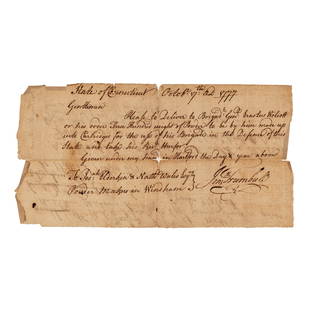 State of Connecticut Octobr 7th AD 1777
Gentlemen
Please to Deliver to Brigadr Genl Erastus Wolcott
or his order Three Hundred weight of Powder to be by him made up
into Cartridges for the use of his Brigade in the Defence of this
State and take his Rect therefor
Given under my hand in Hartford the day & year above
To Jedh Elderkin & Nathl Wales Esqrs
Powder Makers in Windham
Jonth Trumbull